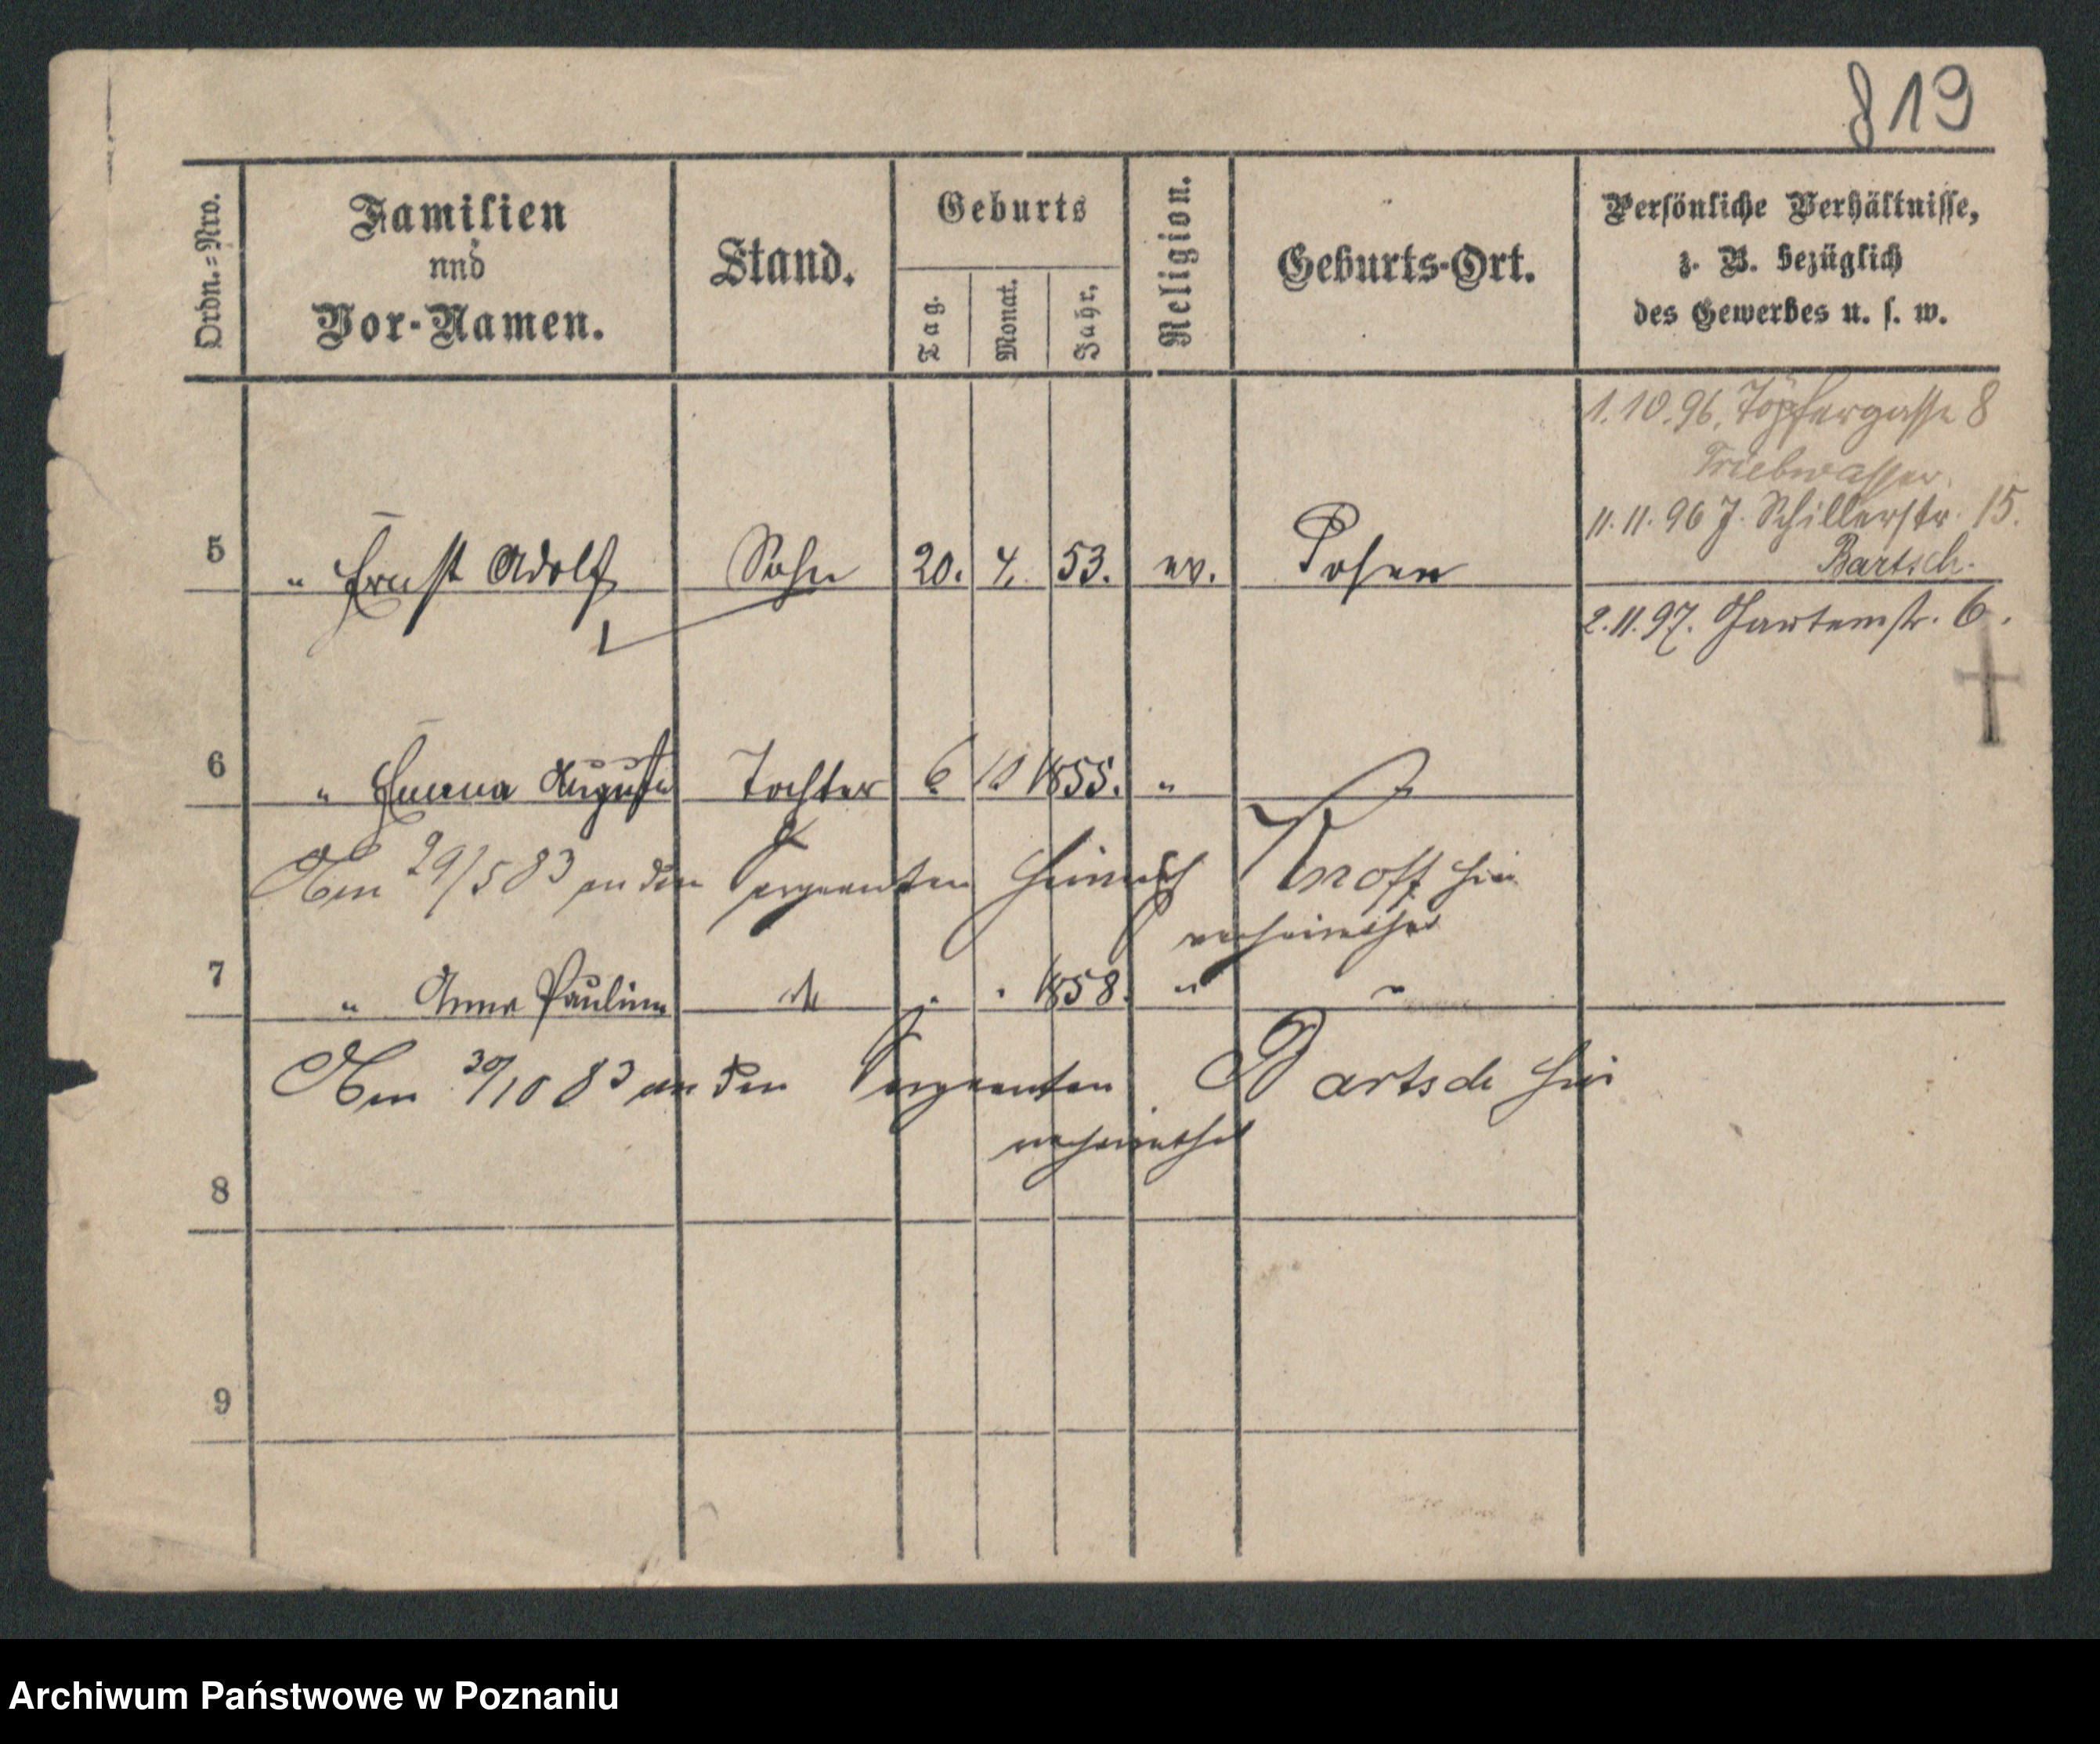 819
Ordn.=Nro.
Familien
und
Vor-Namen.
Stand.
Geburts
Tag.
Monat.
Jahr.
Religion.
Geburts-Ort.
Persönliche Verhältnisse,
z. B. bezüglich
des Gewerbes u. s. w.
1.10.96. Töpfergasse 8
Triebwasser.
11.11.96 J. Schillerstr. 15.
Bartsch.
5 " Ernst Adolf Sohn 20. 4. 53. ev. Posen
2.11.97. Gartenstr. 6.
6 " Emma Auguste Tochter 6 10 1855. "
Am 29/5 83 an den Sergeanten Heinrich Knoff hier
verheirathet
7 " Anna Pauline 1858. " "
Am 30/10 83 an den Sergeanten Bartsch hier
verheirathet
8
9
Archiwum Państwowe w Poznaniu